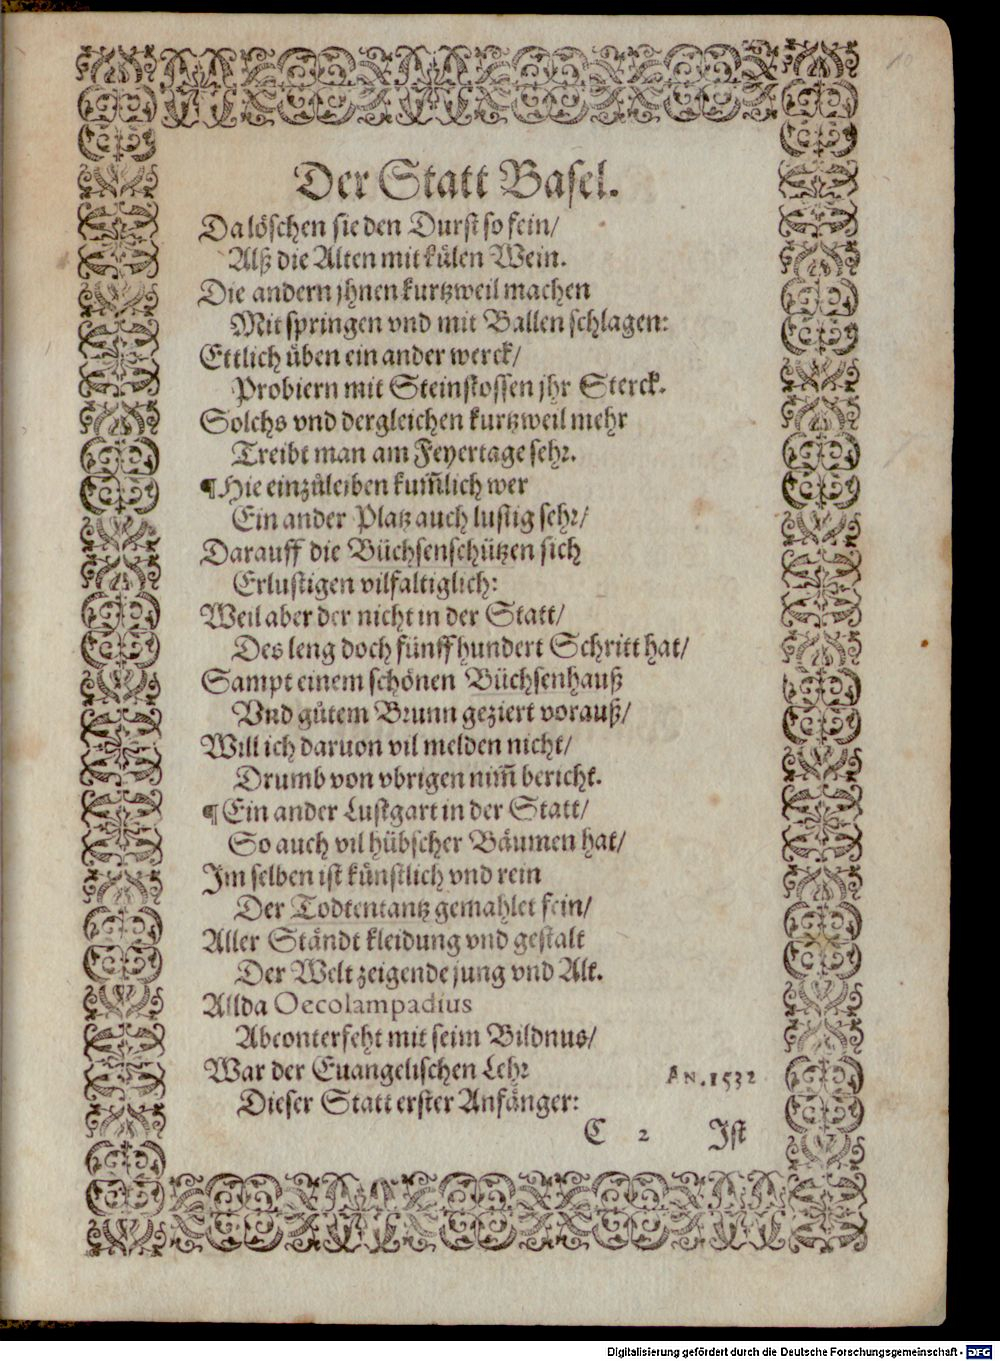 10
Der Statt Basel.
Da löschen sie den Durst so fein/
Alß die Alten mit külen Wein.
Die andern jhnen kurtzweil machen
Mit springen vnd mit Ballen schlagen:
Ettlich üben ein ander werck/
Probiern mit Steinstossen jhr Sterck.
Solchs vnd dergleichen kurtzweil mehr
Treibt man am Feyertage sehr.
¶ Hie einzůleiben kum̃lich wer
Ein ander Platz auch lustig sehr/
Darauff die Büchsenschützen sich
Erlustigen vilfaltiglich:
Weil aber der nicht in der Statt/
Des leng doch fünff hundert Schritt hat/
Sampt einem schönen Büchsenhauß
Vnd gůtem Brunn geziert vorauß/
Will ich daruon vil melden nicht/
Drumb von vbrigen nim̃ bericht.
¶ Ein ander Lustgart in der Statt/
So auch vil hübscher Bäumen hat/
Im selben ist künstlich vnd rein
Der Todtentantz gemahlet fein/
Aller Ständt kleidung vnd gestalt
Der Welt zeigende jung vnd Alt.
Allda Oecolampadius
Abconterfeht mit seim Bildnus/
War der Euangelischen Lehr
AN. 1532
Dieser Statt erster Anfänger:
C 2 Ist
Digitalisierung gefördert durch die Deutsche Forschungsgemeinschaft - DFG